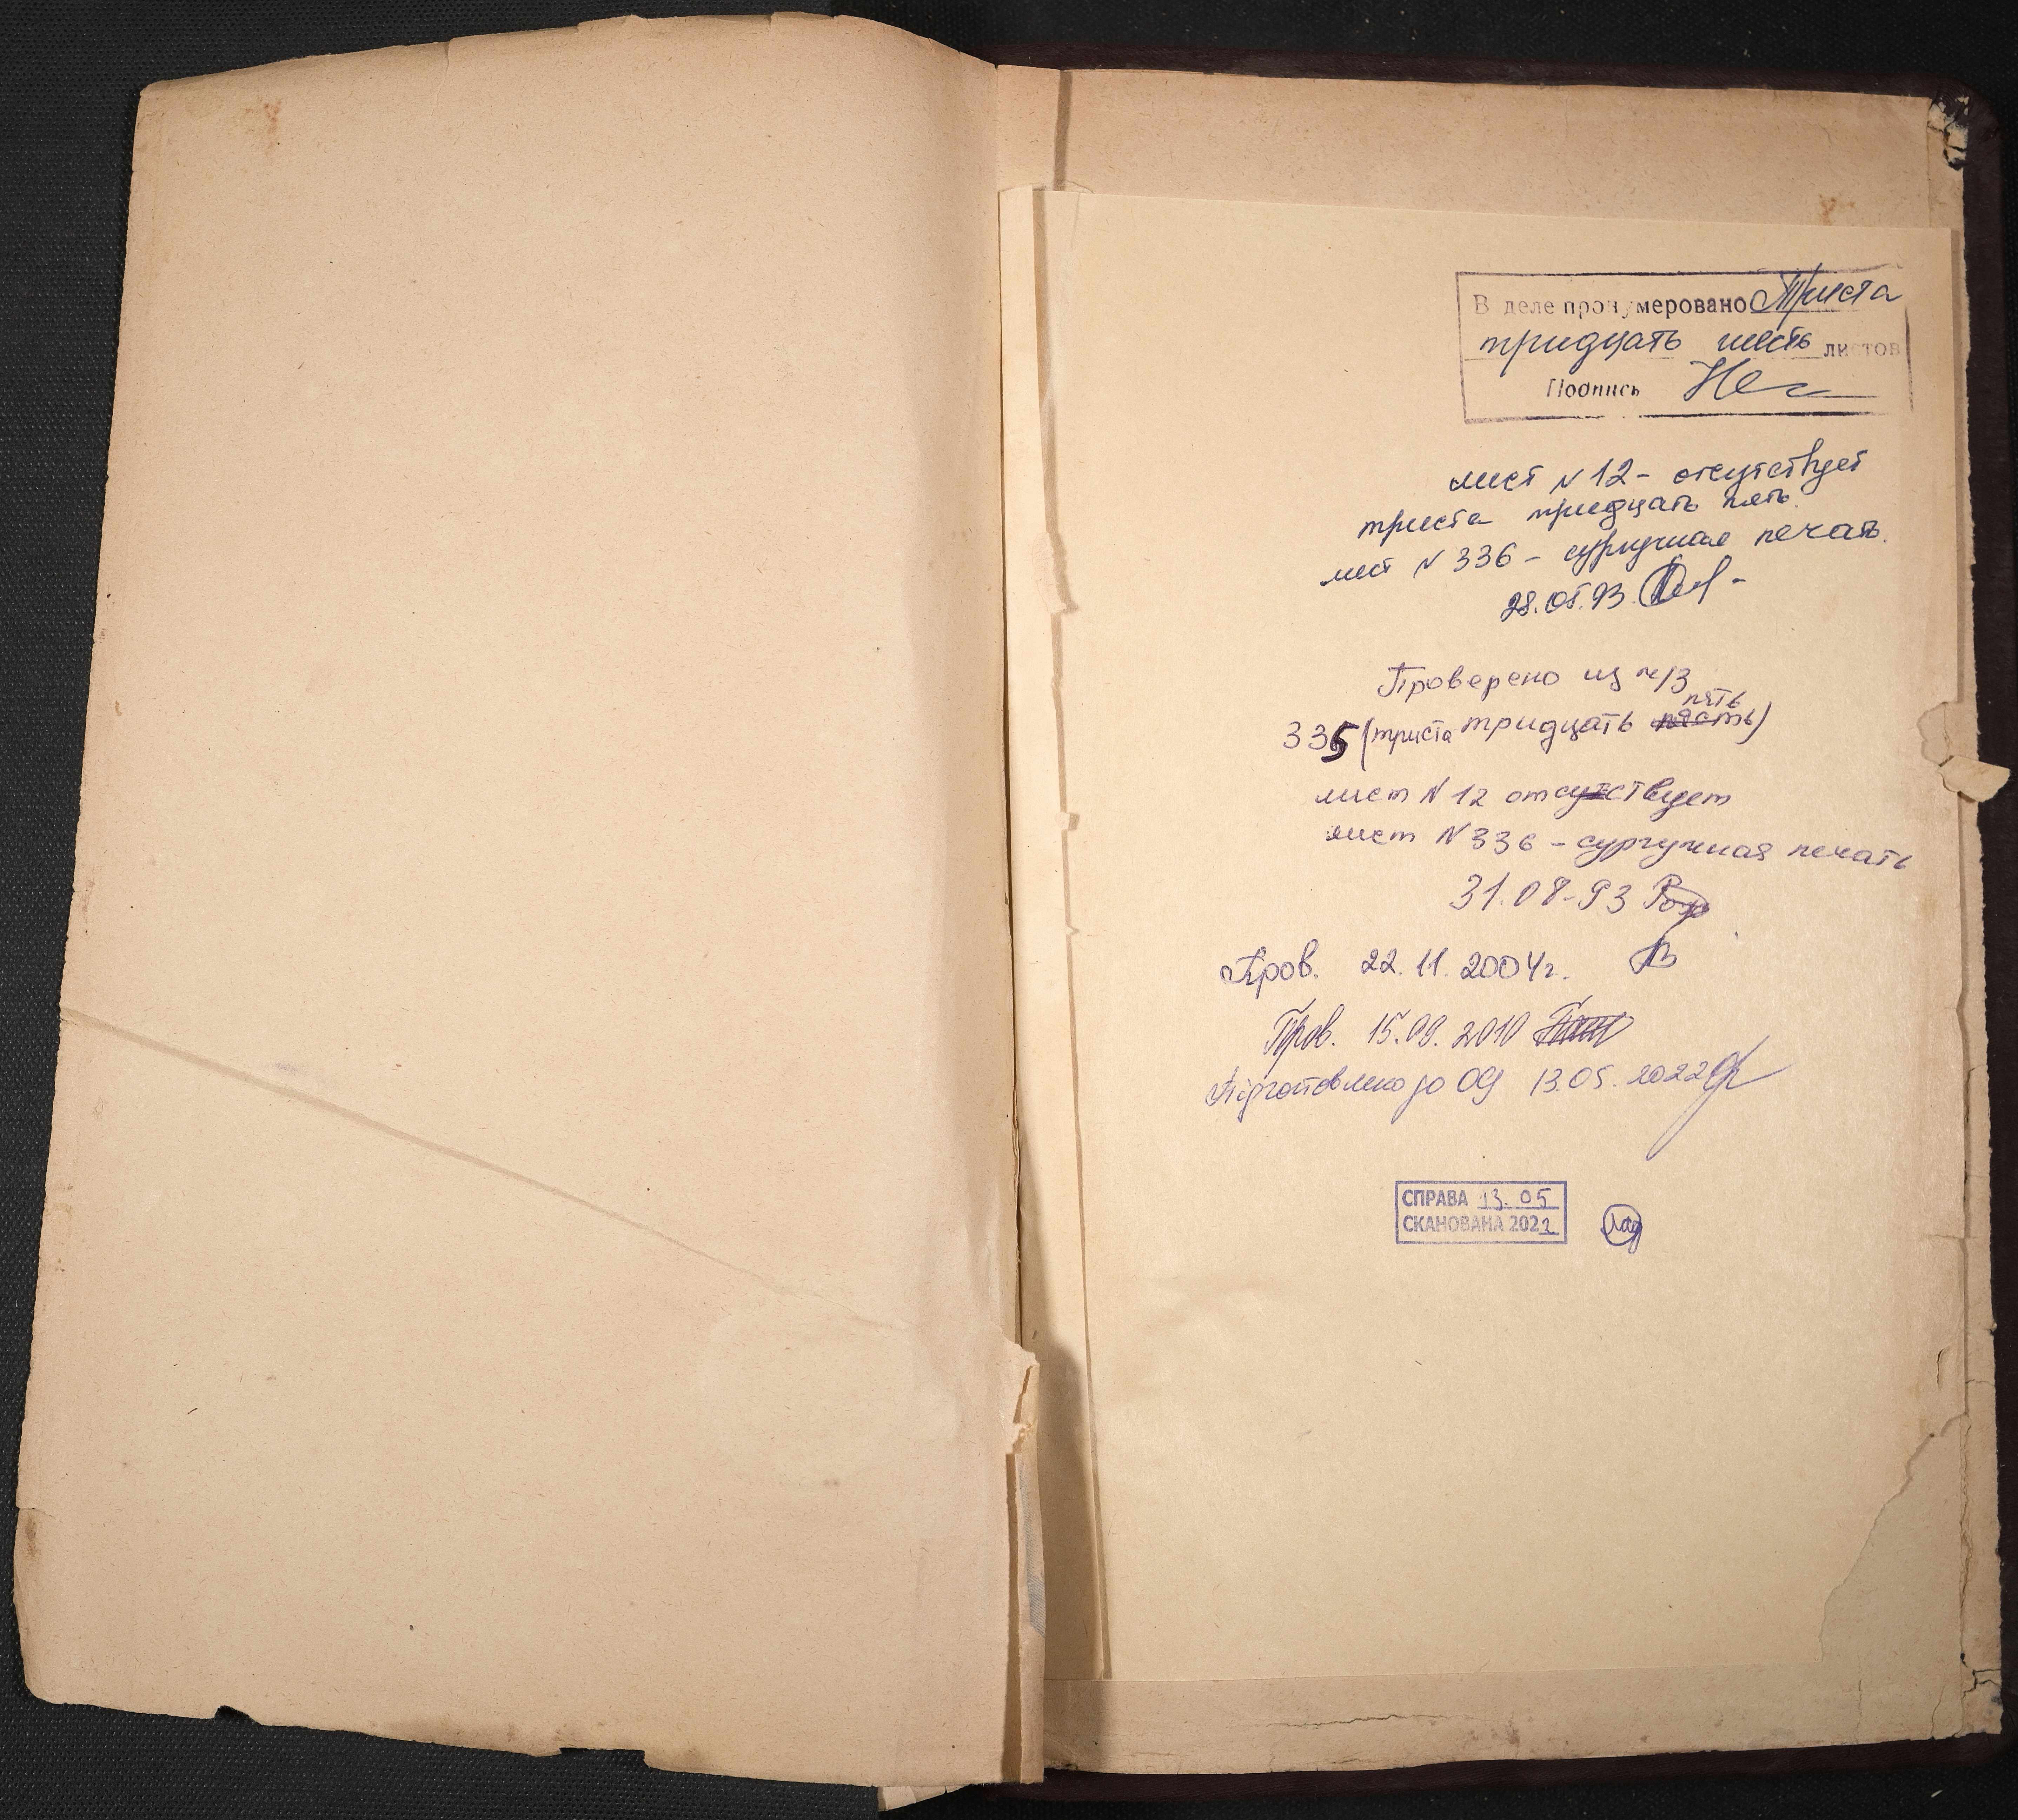 В деле пронумеровано Триста
тридцать шесть листов
Подпись
лист N 12 - отсутствует
триста тридцать пять.
лист N 336 - сургучная печать.
28.05.93.
Проверено из ч/з
пять
335 (триста тридцать)
лист N 12 отсутствует
лист N 336 - сургучная печать
31.08-93
Пров. 22.11.2004г.
Пров. 15.09.2010
Підготовлено до ОЦ 13.05.2022
СПРАВА 13.05
СКАНОВАНА 2022